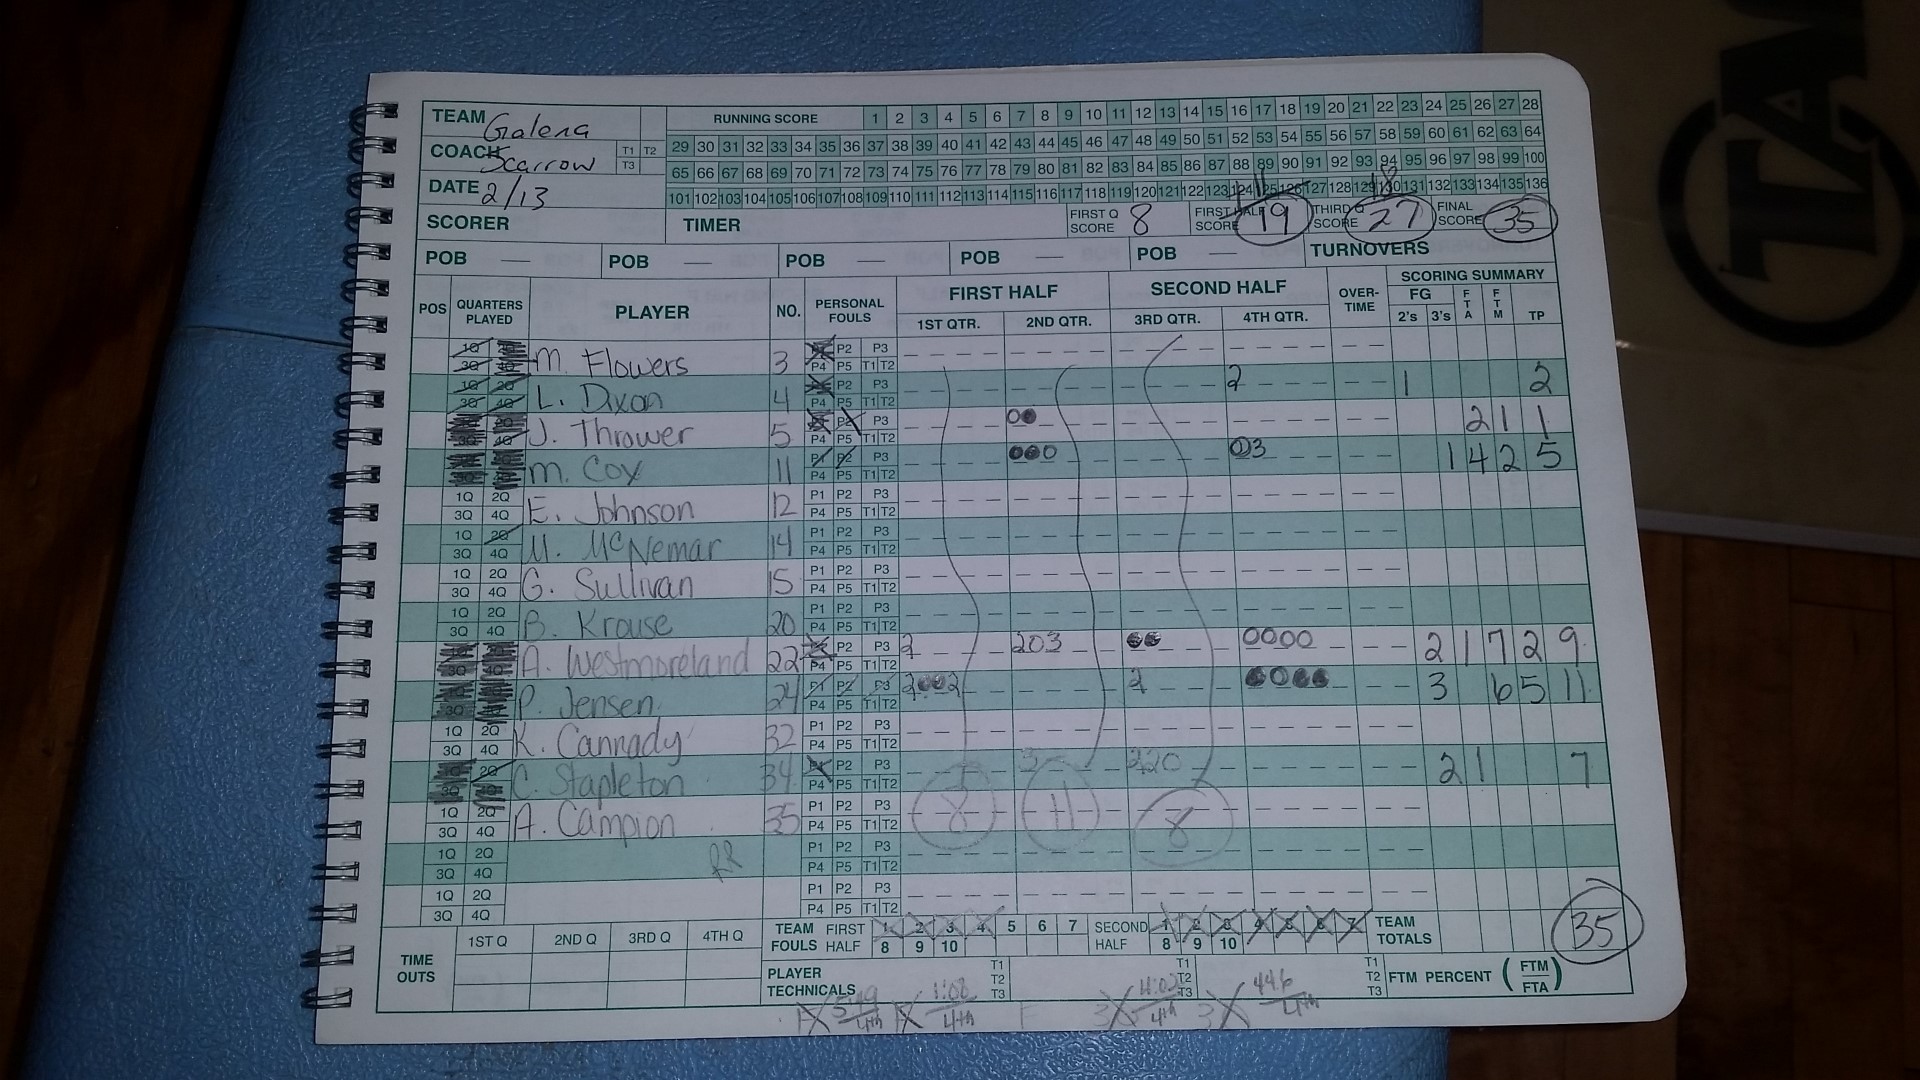 TEAM Galena
COACH Scarrow T1 T2 T3
DATE 2/13
SCORER
TIMER
RUNNING SCORE 1 2 3 4 5 6 7 8 9 10 11 12 13 14 15 16 17 18 19 20 21 22 23 24 25 26 27 28
29 30 31 32 33 34 35 36 37 38 39 40 41 42 43 44 45 46 47 48 49 50 51 52 53 54 55 56 57 58 59 60 61 62 63 64
65 66 67 68 69 70 71 72 73 74 75 76 77 78 79 80 81 82 83 84 85 86 87 88 89 90 91 92 93 94 95 96 97 98 99 100
101 102 103 104 105 106 107 108 109 110 111 112 113 114 115 116 117 118 119 120 121 122 123 124 125 126 127 128 129 130 131 132 133 134 135 136
FIRST Q SCORE 8 FIRST HALF SCORE 19 THIRD Q SCORE 27 FINAL SCORE 35
POB POB POB POB POB TURNOVERS
POS QUARTERS PLAYED PLAYER NO. PERSONAL FOULS FIRST HALF SECOND HALF OVER-TIME SCORING SUMMARY
1ST QTR. 2ND QTR. 3RD QTR. 4TH QTR. FG 2's 3's FTA FTM TP
1Q 2Q 3Q 4Q M. Flowers 3 P1 P2 P3 P4 P5 T1 T2
1Q 2Q 3Q 4Q L. Dixon 4 P1 P2 P3 P4 P5 T1 T2 2 1 2
J. Thrower 5 P2 P3 P4 P5 T1 T2 2 1 1
M. Cox 11 P1 P2 P3 P4 P5 T1 T2 03 1 4 2 5
1Q 2Q 3Q 4Q E. Johnson 12 P1 P2 P3 P4 P5 T1 T2
1Q 2Q 3Q 4Q M. McNemar 14 P1 P2 P3 P4 P5 T1 T2
1Q 2Q 3Q 4Q G. Sullivan 15 P1 P2 P3 P4 P5 T1 T2
1Q 2Q 3Q 4Q B. Krouse 20 P1 P2 P3 P4 P5 T1 T2
A. Westmoreland 22 P2 P3 P4 P5 T1 T2 2 203 0000 2 1 7 2 9
P. Jensen 24 P1 P2 P3 P4 P5 T1 T2 2002 2 0000 3 6 5 11
1Q 2Q 3Q 4Q K. Cannady 32 P1 P2 P3 P4 P5 T1 T2
C. Stapleton 34 P1 P2 P3 P4 P5 T1 T2 3 220 2 1 7
1Q 2Q 3Q 4Q A. Campion 35 P1 P2 P3 P4 P5 T1 T2 8 11 8
1Q 2Q 3Q 4Q RR P1 P2 P3 P4 P5 T1 T2
1Q 2Q 3Q 4Q P1 P2 P3 P4 P5 T1 T2
TIME OUTS 1ST Q 2ND Q 3RD Q 4TH Q
TEAM FOULS FIRST HALF 1 2 3 4 5 6 7 8 9 10 SECOND HALF 1 2 3 4 5 6 7 8 9 10 TEAM TOTALS 35
PLAYER TECHNICALS T1 T2 T3 T1 T2 T3 T1 T2 T3 FTM PERCENT (FTM FTA)
4th 1:08 4th 4th 4th
TAR